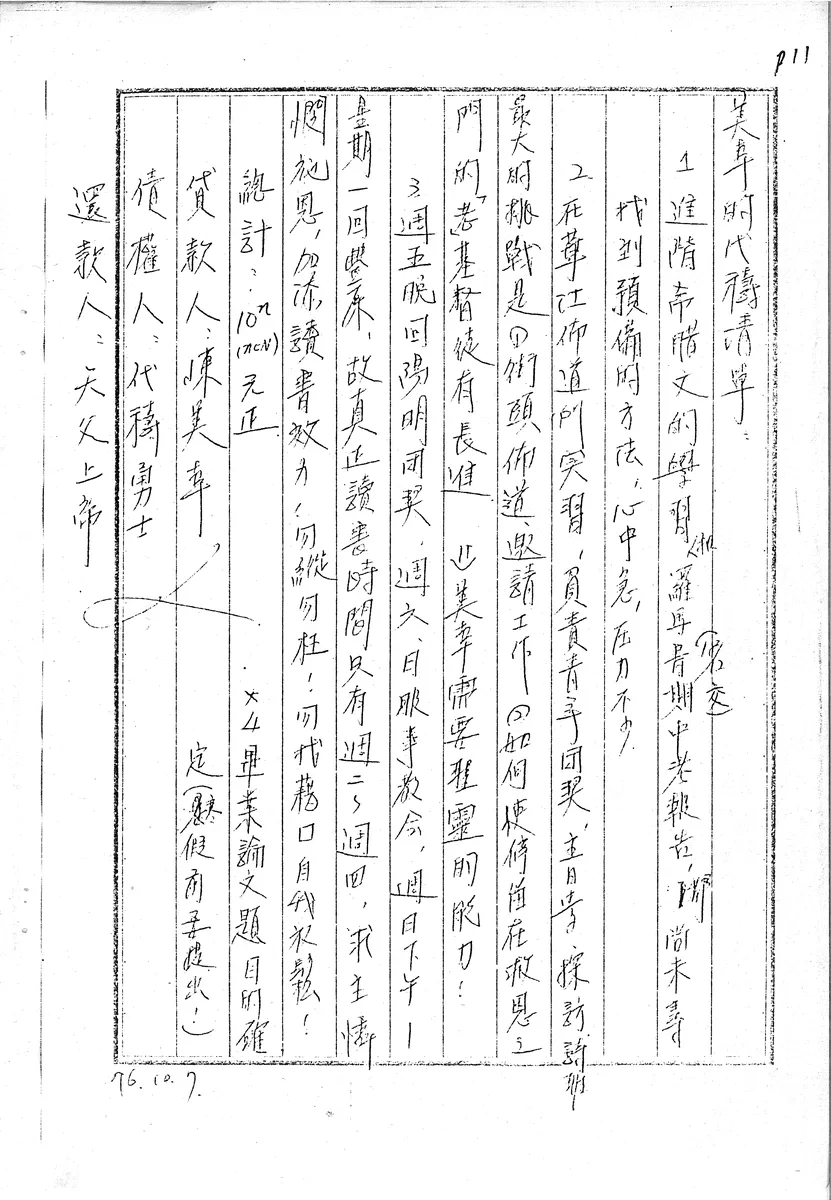 P11
美幸的代禱清單：
1 進階希腊文的學習(如羅馬書期中考報告，尚未尋
(省交)
找到預備的方法，心中急，压力不少
2. 在草江佈道所实習，負責青年团契，主日学，探訪
最大的挑戰是①街頭佈道、邀請工作 ②如何使停留在救恩之
門的「老」基督徒有長進 ∴美幸需要聖靈的能力！
3. 週五晚回陽明团契，週六、日服事教会，週日下午一
星期一回豐原，故真正讀書時間只有週二～週四，求主憐
憫施恩，加添讀書效力，勿縱勿枉！勿找藉口自我放鬆！
＊4 畢業論文題目的確
定(寒假前要提出！)
總計：10ⁿ (n∈N) 元正
貸款人：陳美幸
債權人：代禱勇士
還款人：天父上帝
76.10.7.